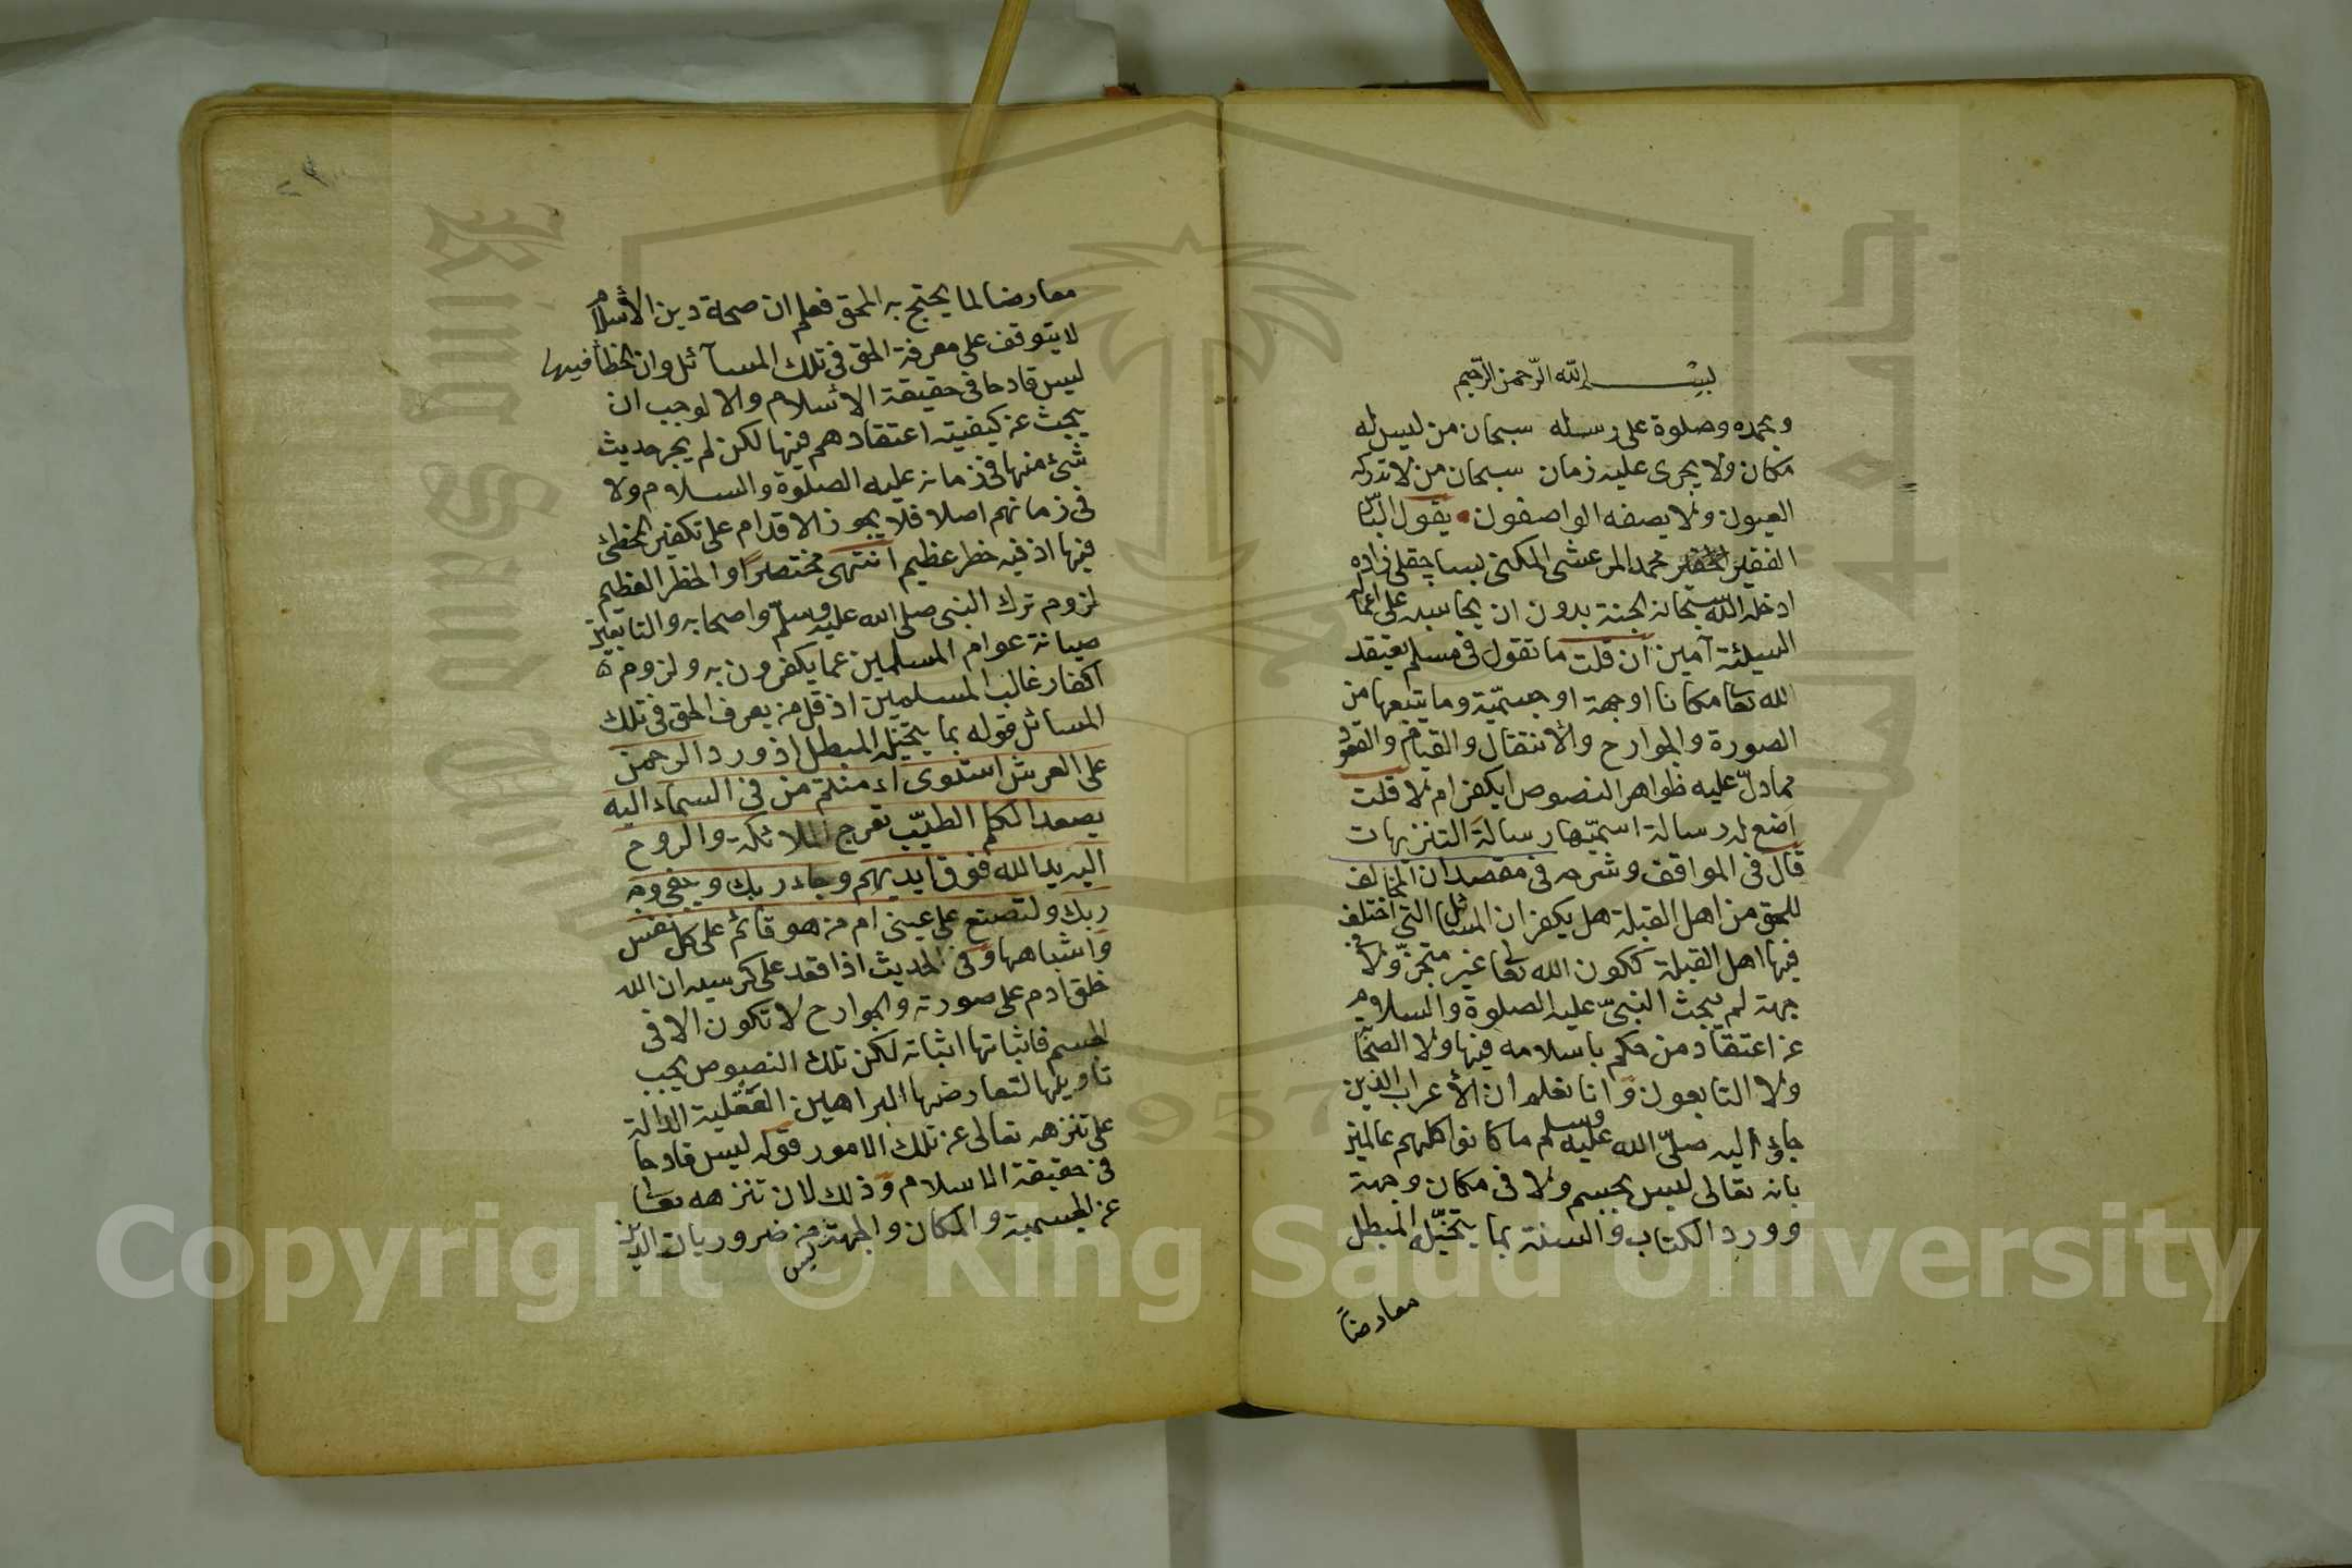 بسم الله الرحمن الرحيم
وبحمده وصلوة على رسله سبحان من ليس له
مكان ولا يجرى عليه زمان سبحان من لا تدركه
العيون ولا يصفه الواصفون يقول البائس
الفقير الحقير محمد المرعشى المكنى بساچقلى زاده
ادخله الله سبحانه الجنة بدون ان يحاسبه على اعماله
السيئة آمين ان قلت ما تقول فى مسلم يعتقد
الله تعا مكانا او جهة او جسميّة وما يتبعها من
الصورة والجوارح والأنتقال والقيام والقعود
مما دلّ عليه ظواهر النصوص ايكفر ام لا قلت
اضع له رسالة اسمّيها رسالة التنزيهات
قال فى المواقف وشرحه فى مقصد ان المخالف
للحق من اهل القبلة هل يكفر ان المسائل التى اختلف
فيها اهل القبلة ككون الله تعا غير متحيّز ولا فى
جهة لم يبحث النبىّ عليه الصلوة والسلام
عن اعتقاد من حكم باسلامه فيها ولا الصحابة
ولا التابعون وانا نعلم ان الأعراب الذين
جاؤا اليه صلّى الله عليه وسلم ما كانوا كلهم عالمين
بانه تعالى ليس بجسم ولا فى مكان وجهة
وورد الكتاب والسنة بما يتخيّله المبطل
معارضاً
معارضا لما يحتج به المحق فعلم ان صحة دين الأسلام
لا يتوقف على معرفة الحق فى تلك المسآئل وان الخطأ فيها
ليس قادحا فى حقيقة الأسلام والا لوجب ان
يبحث عن كيفية اعتقادهم فيها لكن لم يجر حديث
شئ منها فى زمانه عليه الصلوة والسلام ولا
فى زمانهم اصلا فلا يجوز الاقدام على تكفير المخطئ
فيها اذ فيه خطر عظيم انتهى مختصرا والخطر العظيم
لزوم ترك النبى صلى الله عليه وسلّم واصحابه والتابعين
صيانة عوام المسلمين عما يكفرون به ولزوم
اكفار غالب المسلمين اذ قل من يعرف الحق فى تلك
المسائل قوله بما يتخيّله المبطل اذ ورد الرحمن
على العرش استوى اءمنتم من فى السماء اليه
يصعد الكلم الطيّب تعرج الملائكة والروح
اليه يد الله فوق ايديهم وجاء ربك ويبقى وجه
ربك ولتصنع على عينى ام من هو قائم على كل نفس
واشباهها وفى الحديث اذا قعد على كرسيه ان الله
خلق ادم على صورته والجوارح لا تكون الا فى
الجسم فاثباتها اثباته لكن تلك النصوص يجب
تاويلها لتعارضها البراهين العقلية الدالة
على تنزهه تعالى عن تلك الامور قوله ليس قادحا
فى حقيقة الاسلام وذلك لان تنزهه تعالى
عن الجسمية والمكان والجهة من ضروريات الدين
ليس
Copyright © King Saud University
جامعة الملك سعود
King Saud University
1957